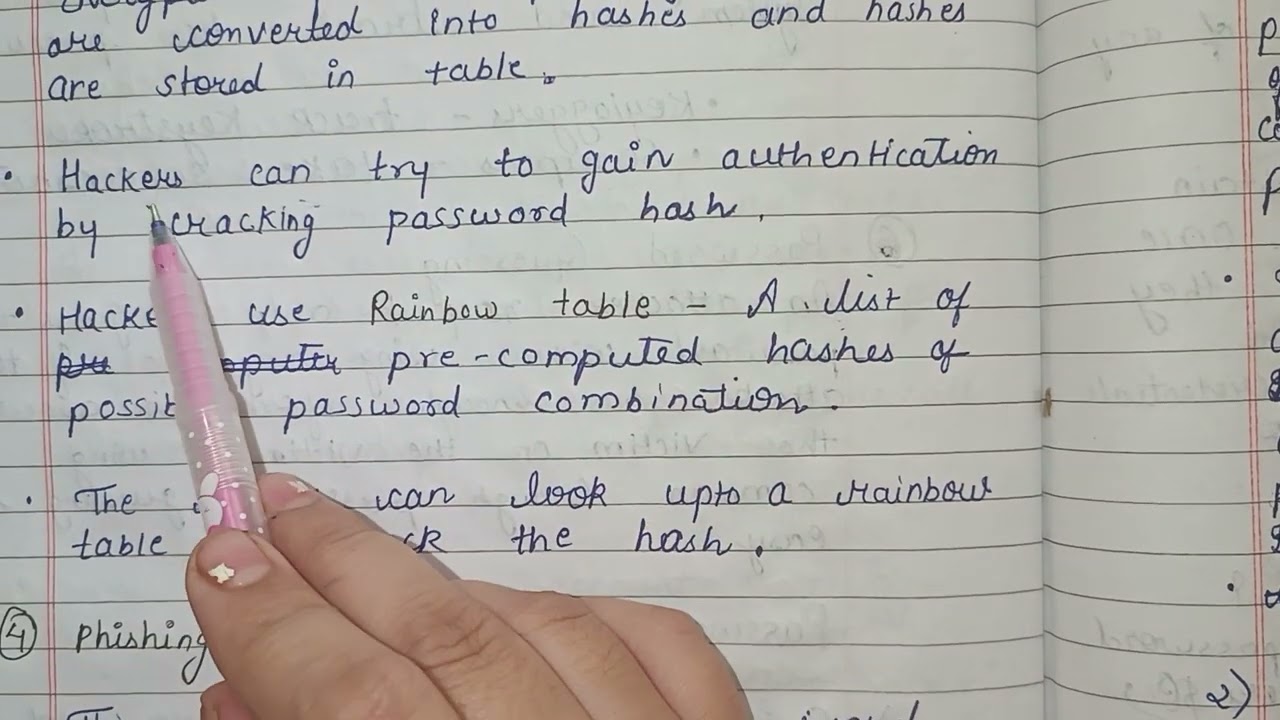 are converted into hashes and hashes
are stored in table.
• Hackers can try to gain authentication
by cracking password hash.
• use Rainbow table - A list of
pre-computed hashes of
password combination.
• The can look upto a rainbow
table the hash.
④ Phishing
2)